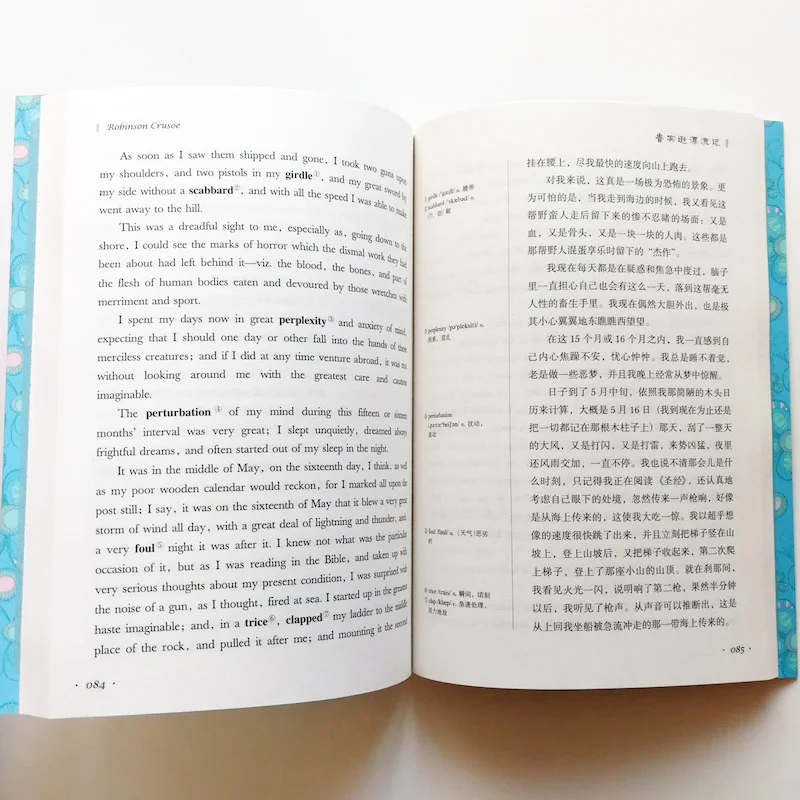 Robinson Crusoe
As soon as I saw them shipped and gone, I took two guns upon
my shoulders, and two pistols in my girdle①, and my great sword by
my side without a scabbard②, and with all the speed I was able to make
went away to the hill.
This was a dreadful sight to me, especially as, going down to the
shore, I could see the marks of horror which the dismal work they had
been about had left behind it—viz. the blood, the bones, and part of
the flesh of human bodies eaten and devoured by those wretches with
merriment and sport.
I spent my days now in great perplexity③ and anxiety of mind,
expecting that I should one day or other fall into the hands of these
merciless creatures; and if I did at any time venture abroad, it was not
without looking around me with the greatest care and caution
imaginable.
The perturbation④ of my mind during this fifteen or sixteen
months' interval was very great; I slept unquietly, dreamed always
frightful dreams, and often started out of my sleep in the night.
It was in the middle of May, on the sixteenth day, I think, as well
as my poor wooden calendar would reckon, for I marked all upon the
post still; I say, it was on the sixteenth of May that it blew a very great
storm of wind all day, with a great deal of lightning and thunder, and,
a very foul⑤ night it was after it. I knew not what was the particular
occasion of it, but as I was reading in the Bible, and taken up with
very serious thoughts about my present condition, I was surprised with
the noise of a gun, as I thought, fired at sea. I started up in the greatest
haste imaginable; and, in a trice⑥, clapped⑦ my ladder to the middle
place of the rock, and pulled it after me; and mounting it the second
· 084 ·
鲁宾逊漂流记
① girdle /'ɡɜːdl/ n. 腰带
② scabbard /'skæbəd/ n.
(刀、剑) 鞘
③ perplexity /pə'pleksiti/ n.
困惑，混乱
④ perturbation
/ˌpɜːtə'beiʃən/ n. 扰动，
涌动
⑤ foul /faul/ a. （天气）恶劣
的
⑥ trice /trais/ n. 瞬间，顷刻
⑦ clap /klæp/ v. 急速处理，
用力地放
挂在腰上，尽我最快的速度向山上跑去。
对我来说，这真是一场极为恐怖的景象。更
为可怕的是，当我走到海边的时候，我又看见这
帮野蛮人走后留下来的惨不忍睹的场面：又是
血，又是骨头，又是一块一块的人肉。这些都是
那帮野人混蛋享乐时留下的“杰作”。
我现在每天都是在疑惑和焦急中度过，脑子
里一直担心自己也会有这么一天，落到这帮毫无
人性的畜生手里。我现在偶然大胆外出，也是极
其小心翼翼地东瞧瞧西望望。
在这 15 个月或 16 个月之内，我一直感到自
己内心焦躁不安，忧心忡忡。我总是睡不着觉，
老是做一些恶梦，并且我晚上经常从梦中惊醒。
日子到了 5 月中旬，依照我那简陋的木头日
历来计算，大概是 5 月 16 日（我到现在为止还是
把一切都记在那根木柱子上）那天，刮了一整天
的大风，又是打闪，又是打雷，来势凶猛，夜里
还风雨交加，一直不停。我也说不清那会儿是什
么时刻，只记得我正在阅读《圣经》，还认真地
考虑自己眼下的处境，忽然传来一声枪响，好像
是从海上传来的，这使我大吃一惊。我以超乎想
像的速度很快跳了出来，并且立刻把梯子竖在山
坡上，登上山坡后，又把梯子收起来，第二次爬
上梯子，登上了那座小山的山顶。就在刹那间，
我看见火光一闪，说明响了第二枪，果然半分钟
以后，我听见了枪声。从声音可以推断出，这是
从上回我坐船被急流冲走的那一带海上传来的。
· 085 ·